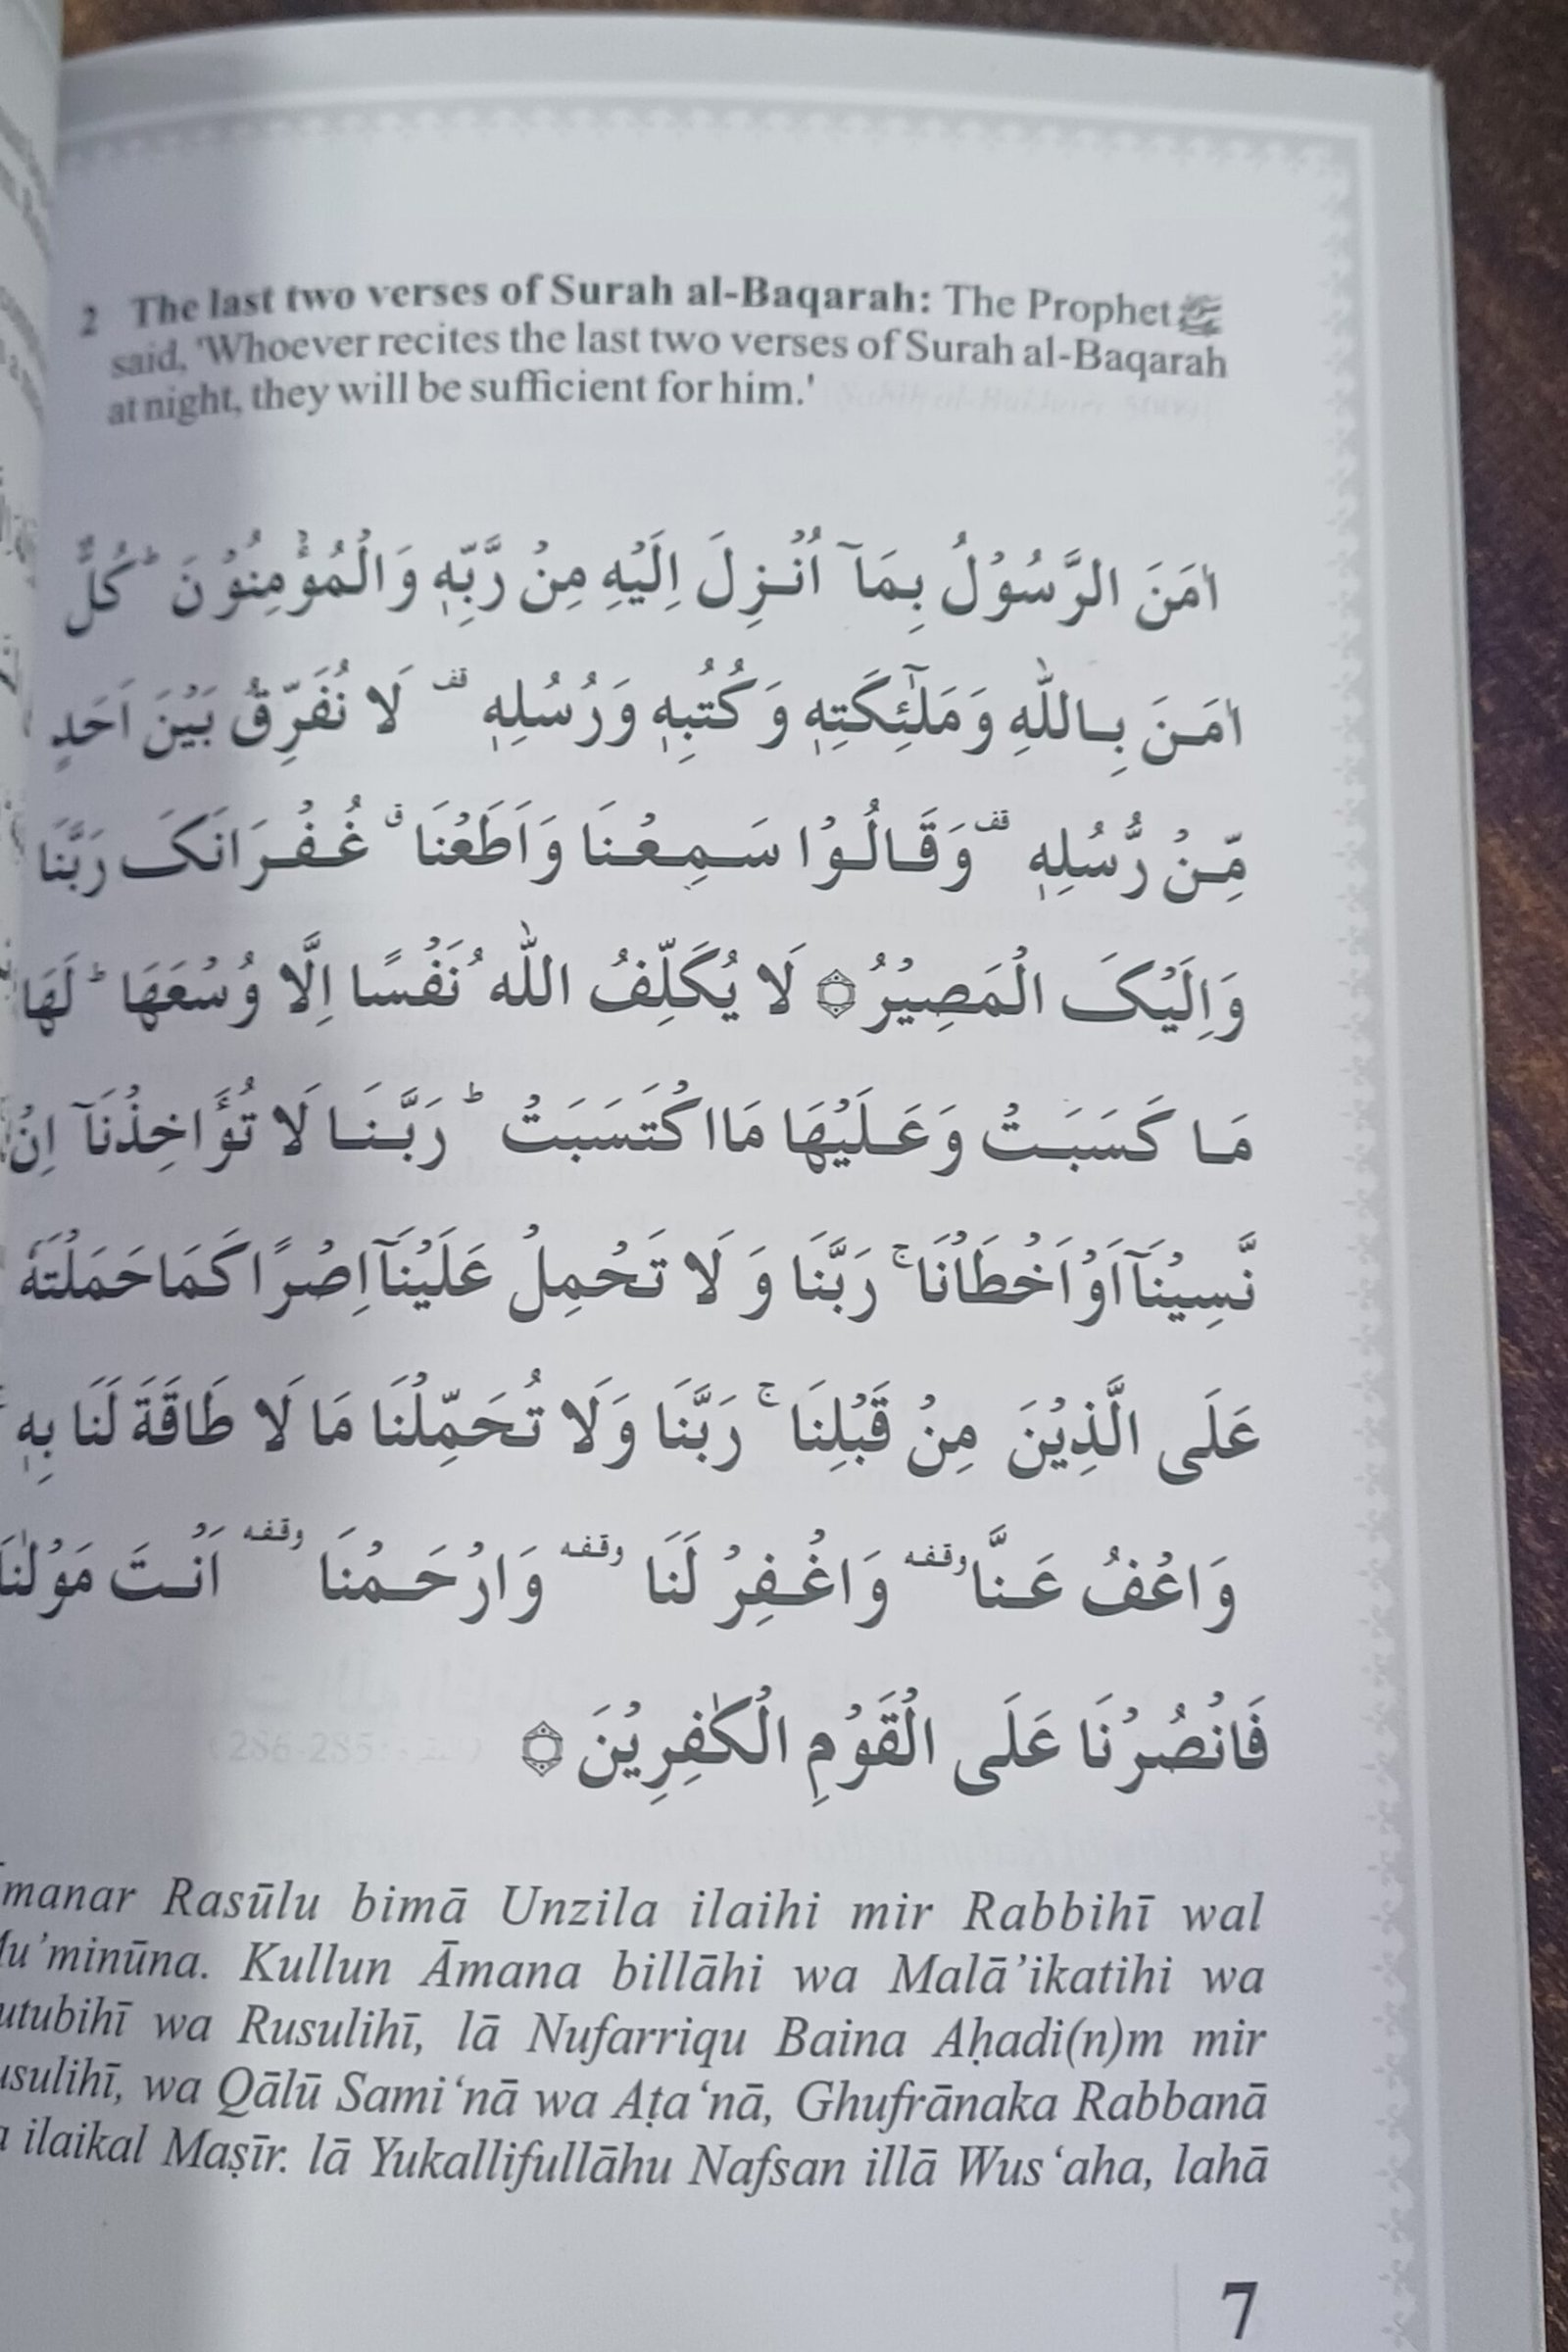 2 The last two verses of Surah al-Baqarah: The Prophet ﷺ
said, 'Whoever recites the last two verses of Surah al-Baqarah
at night, they will be sufficient for him.'
اٰمَنَ الرَّسُوْلُ بِمَآ اُنْزِلَ اِلَيْهِ مِنْ رَّبِّهٖ وَالْمُؤْمِنُوْنَ ؕ كُلٌّ
اٰمَنَ بِاللّٰهِ وَمَلٰٓئِكَتِهٖ وَكُتُبِهٖ وَرُسُلِهٖ قف لَا نُفَرِّقُ بَيْنَ اَحَدٍ
مِّنْ رُّسُلِهٖ قف وَقَالُوْا سَمِعْنَا وَاَطَعْنَا ق غُفْرَانَكَ رَبَّنَا
وَاِلَيْكَ الْمَصِيْرُ ۝ لَا يُكَلِّفُ اللّٰهُ نَفْسًا اِلَّا وُسْعَهَا ؕ لَهَا
مَا كَسَبَتْ وَعَلَيْهَا مَا اكْتَسَبَتْ ؕ رَبَّنَا لَا تُؤَاخِذْنَآ اِنْ
نَّسِيْنَآ اَوْ اَخْطَاْنَا ۚ رَبَّنَا وَلَا تَحْمِلْ عَلَيْنَآ اِصْرًا كَمَا حَمَلْتَهٗ
عَلَى الَّذِيْنَ مِنْ قَبْلِنَا ۚ رَبَّنَا وَلَا تُحَمِّلْنَا مَا لَا طَاقَةَ لَنَا بِهٖ
وَاعْفُ عَنَّا وقفه وَاغْفِرْ لَنَا وقفه وَارْحَمْنَا وقفه اَنْتَ مَوْلٰىنَا
فَانْصُرْنَا عَلَى الْقَوْمِ الْكٰفِرِيْنَ ۝
manar Rasūlu bimā Unzila ilaihi mir Rabbihī wal
u'minūna. Kullun Āmana billāhi wa Malā'ikatihi wa
utubihī wa Rusulihī, lā Nufarriqu Baina Aḥadi(n)m mir
usulihī, wa Qālū Sami‘nā wa Aṭa‘nā, Ghufrānaka Rabbanā
ilaikal Maṣīr. lā Yukallifullāhu Nafsan illā Wus‘aha, lahā
7